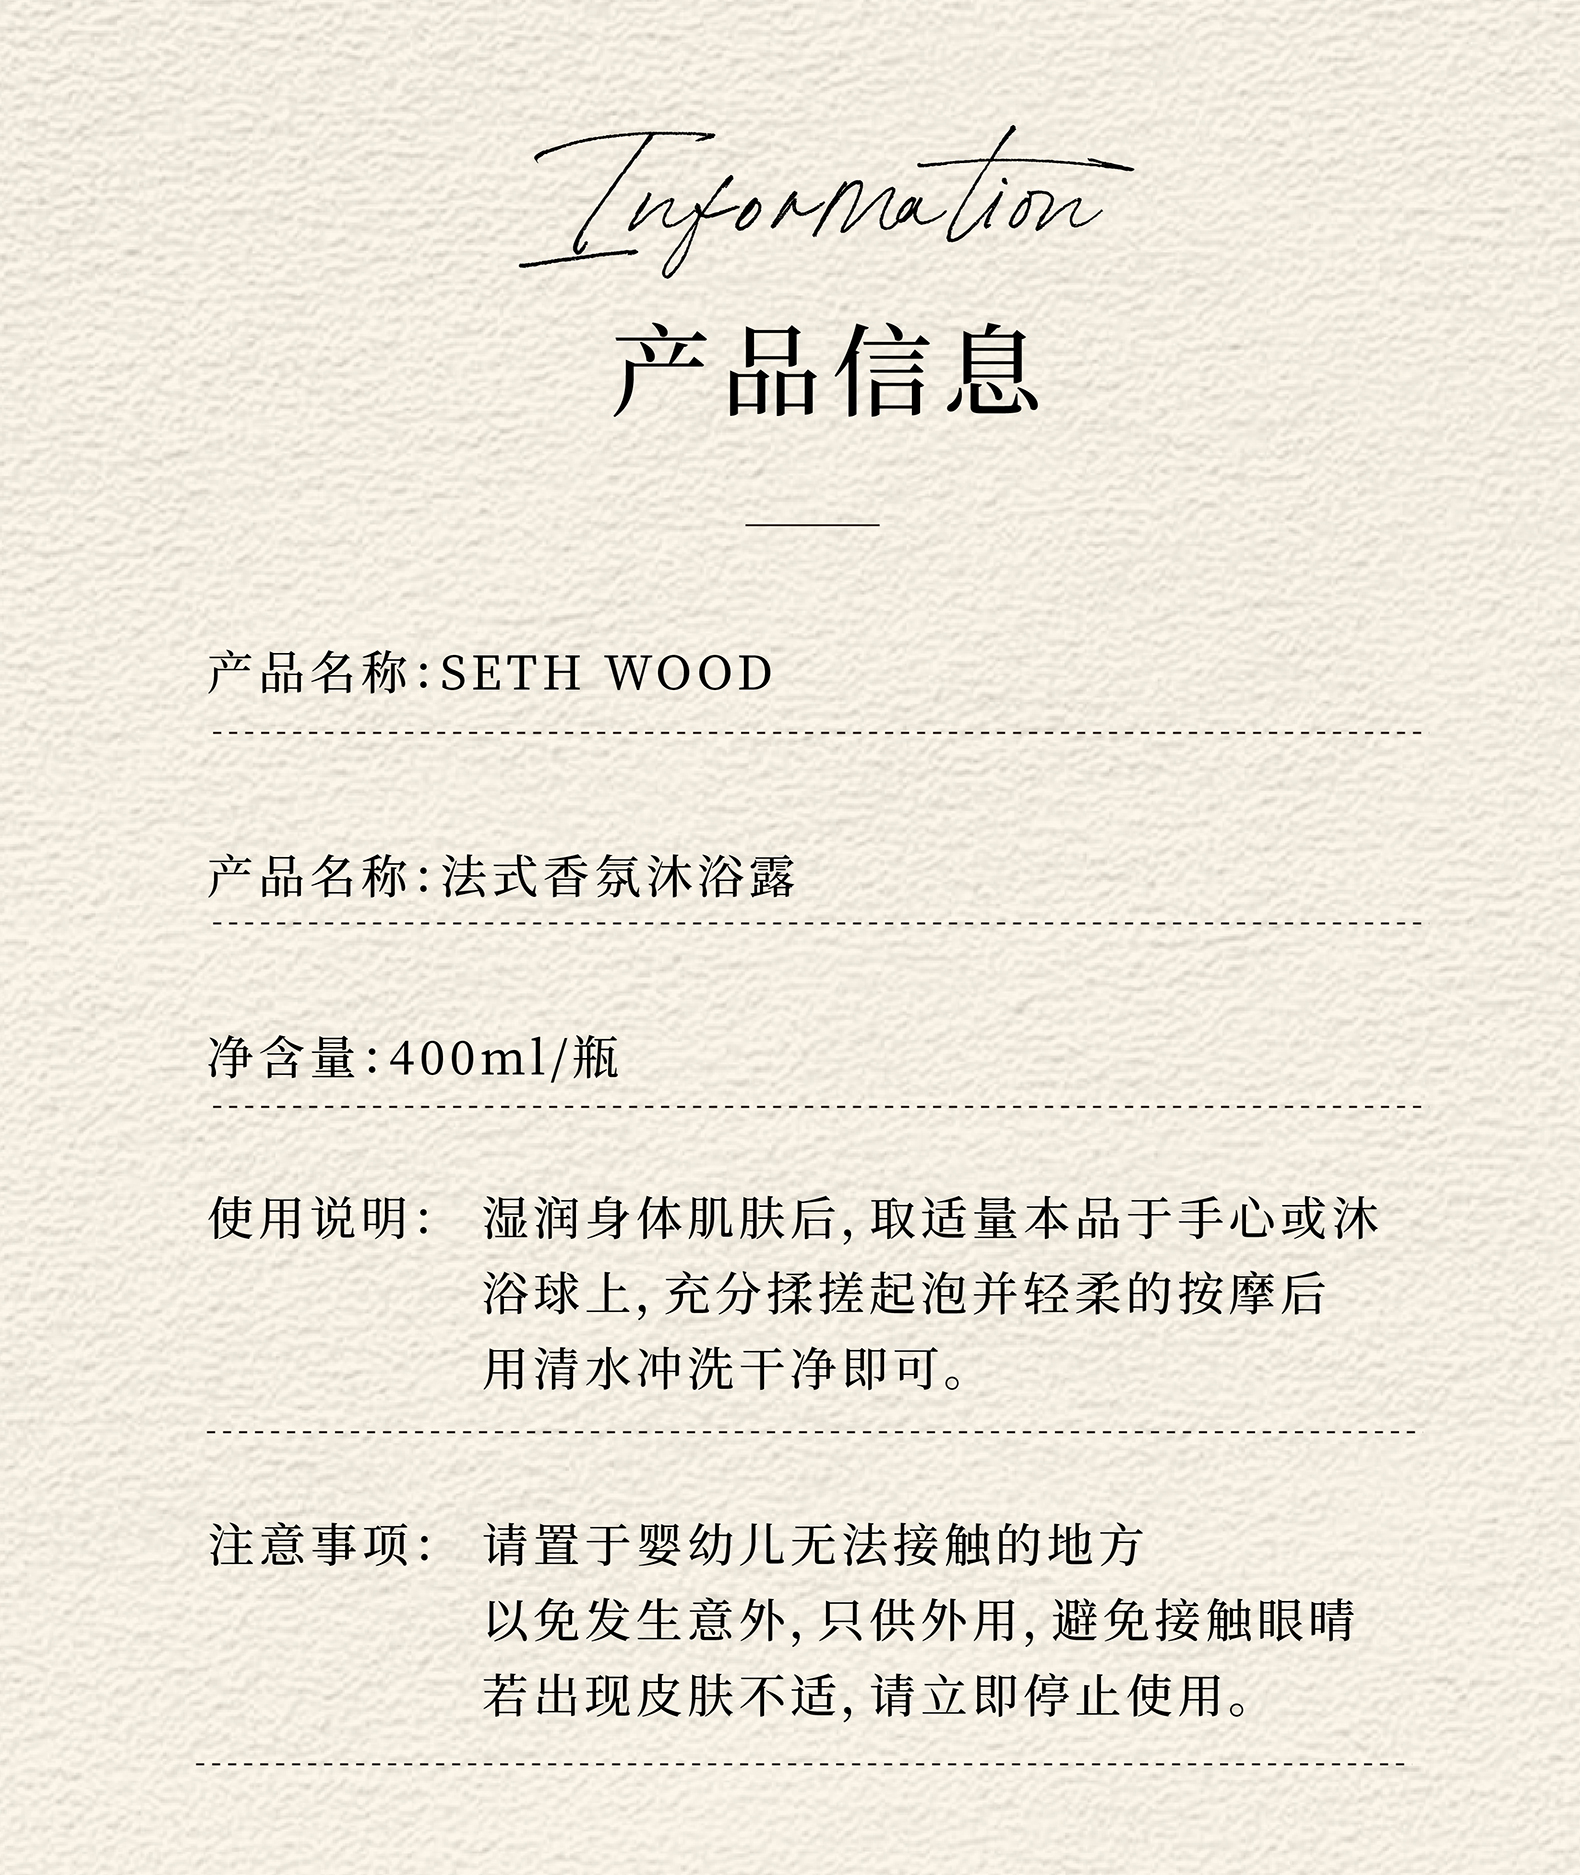 Information
产品信息
产品名称:SETH WOOD
产品名称:法式香氛沐浴露
净含量:400ml/瓶
使用说明: 湿润身体肌肤后,取适量本品于手心或沐
浴球上,充分揉搓起泡并轻柔的按摩后
用清水冲洗干净即可。
注意事项: 请置于婴幼儿无法接触的地方
以免发生意外,只供外用,避免接触眼睛
若出现皮肤不适,请立即停止使用。